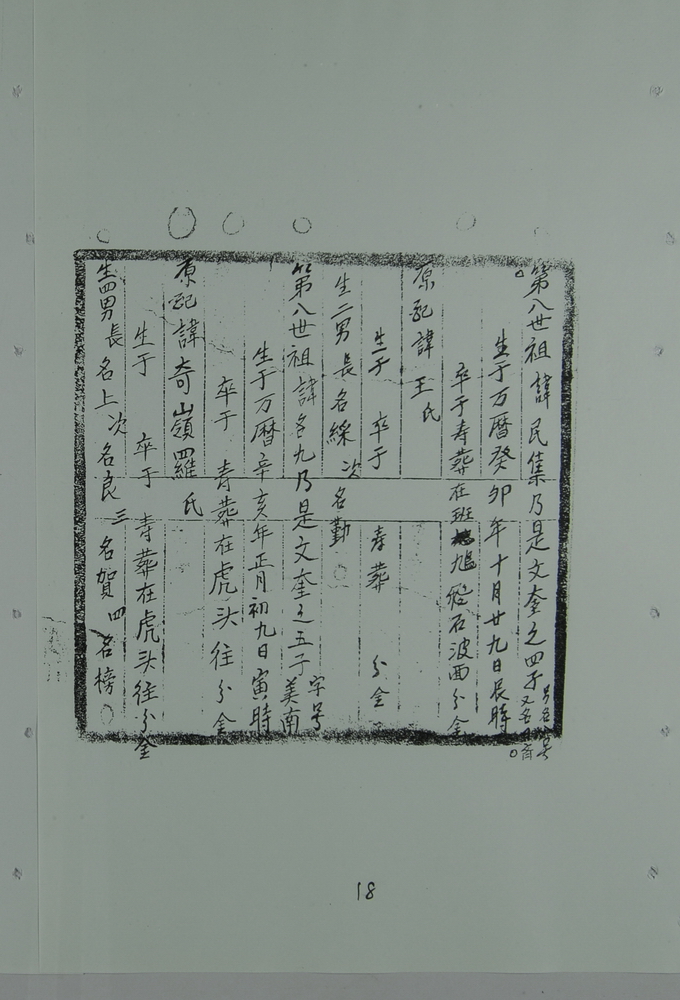 第八世祖諱民集乃是文奎之四子
又名
生于万曆癸卯年十月廿九日辰時
卒于寿葬在班鳩 石波面分金
原配諱王氏
生于 卒于 寿葬 分金
生二男長名綵次名勤
第八世祖諱名九乃是文奎之五子字号美南
生于万曆辛亥年正月初九日寅時
卒于 寿葬在虎头往分金
原配諱奇嶺羅氏
生于 卒于 寿葬在虎头往分金
生四男長名上次名良三名賀四名榜
18